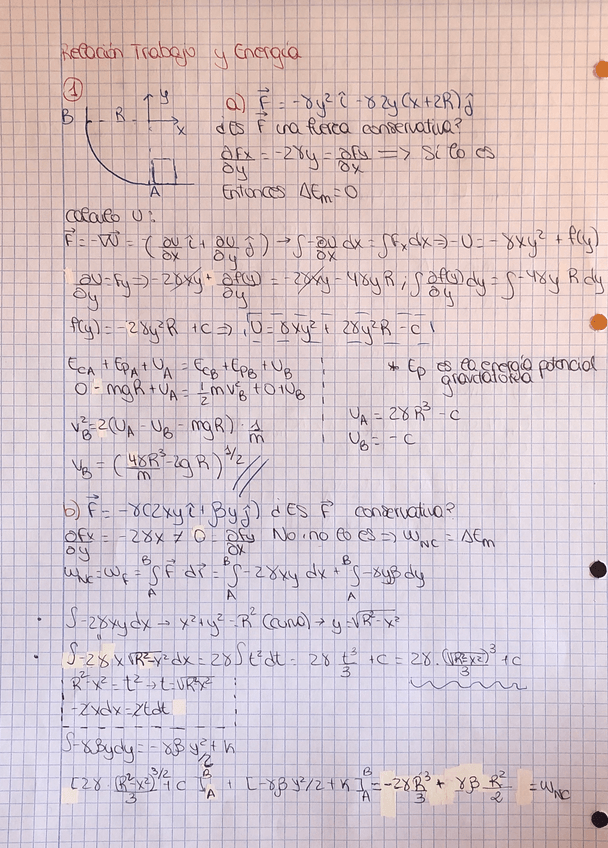 Relación Trabajo y Energía
①
y
B
R
x
A
a) F⃗ = -γy² î - γ2y(x+2R) ĵ
¿ES F⃗ una fuerza conservativa?
∂Fx/∂y = -2γy = ∂Fy/∂x => Sí lo es
Entonces ΔEm = 0
Cálculo U:
F⃗ = -∇U = (∂U/∂x î + ∂U/∂y ĵ) → ∫-∂U/∂x dx = ∫Fx dx => -U = -γxy² + f(y)
∂U/∂y = Fy => -2γxy + ∂f(y)/∂y = -2γxy - 4γyR ; ∫∂f(y)/∂y dy = ∫-4γy R dy
f(y) = -2γy²R + c => U = γxy² + 2γy²R - c
EcA + EpA + UA = EcB + EpB + UB
0 - mgR + UA = 1/2 m v²B + 0 + UB
v²B = 2(UA - UB - mgR) · 1/m
vB = (4γR³/m - 2gR)^1/2
* Ep es la energía potencial gravitatoria
UA = 2γR³ - c
UB = -c
b) F⃗ = -γ(2xy î + βy ĵ) ¿ES F⃗ conservativa?
∂Fx/∂y = -2γx ≠ 0 = ∂Fy/∂x No, no lo es => WNC = ΔEm
WNC = WF = ∫_A^B F⃗ dr⃗ = ∫_A^B -2γxy dx + ∫_A^B -γyβ dy
· ∫-2γxy dx → x² + y² = R² (curva) → y = √R²-x²
· ∫-2γx√R²-x² dx = 2γ∫t² dt = 2γ t³/3 + c = 2γ · (√R²-x²)³/3 + c
R²-x² = t² → t = √R²-x²
-2xdx = 2tdt
∫-γβydy = -γβ y²/2 + k
[2γ · (R²-x²)^3/2/3 + c]_A^B + [-γβ y²/2 + k]_A^B = -2γR³/3 + γβ R²/2 = WNC